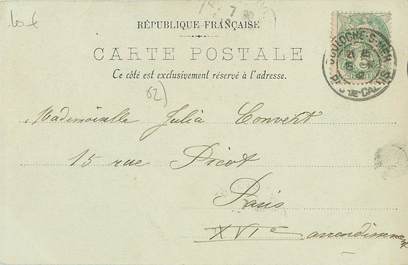 RÉPUBLIQUE FRANÇAISE
CARTE POSTALE
Ce côté est exclusivement réservé à l'adresse.
62)
Mademoiselle Julia Convert
15 rue Picot
Paris
XVIe arrondissement